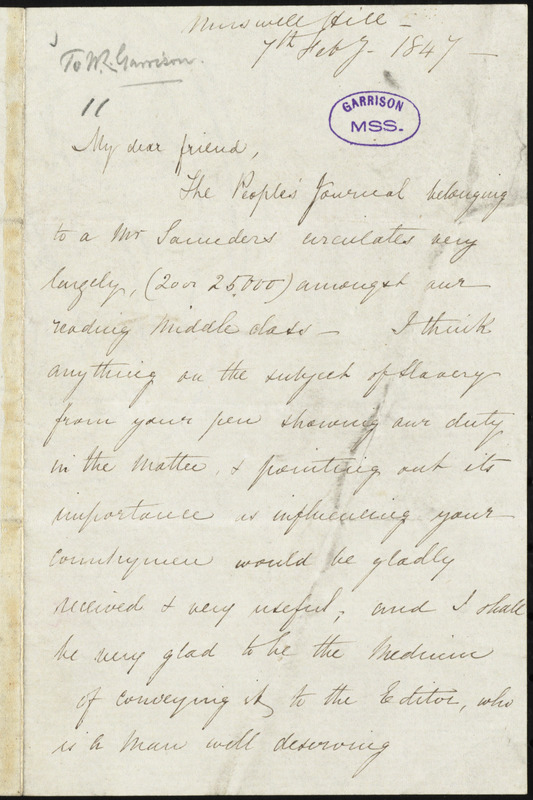 Muswell Hill –
7th Feby – 1847 –
To W.L. Garrison.
11
GARRISON
MSS.
My dear friend,
The People's Journal belonging
to a Mr Saunders circulates very
largely, (20 or 25.000) amongst our
reading Middle class – I think
anything on the subject of Slavery
from your pen showing our duty
in the Matter, & pointing out its
importance as influencing your
Countrymen would be gladly
received & very useful; and I shall
be very glad to be the Medium
of conveying it to the Editor, who
is a Man well deserving